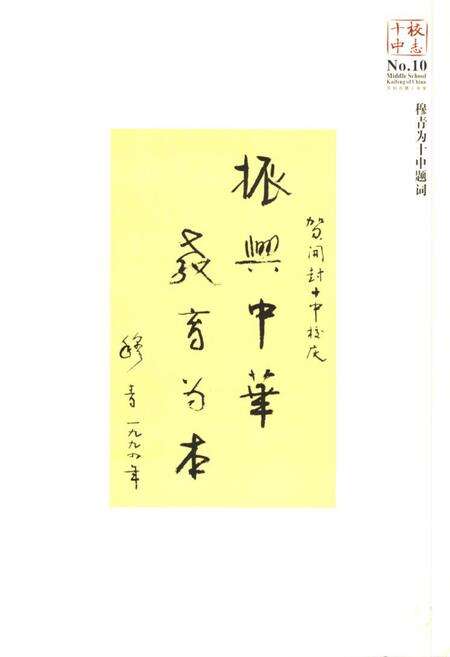 十中
校志
No.10
Middle School
Kaifeng of China
穆青为十中题词
贺開封十中校庆
振興中華
教育为本
穆青一九九年